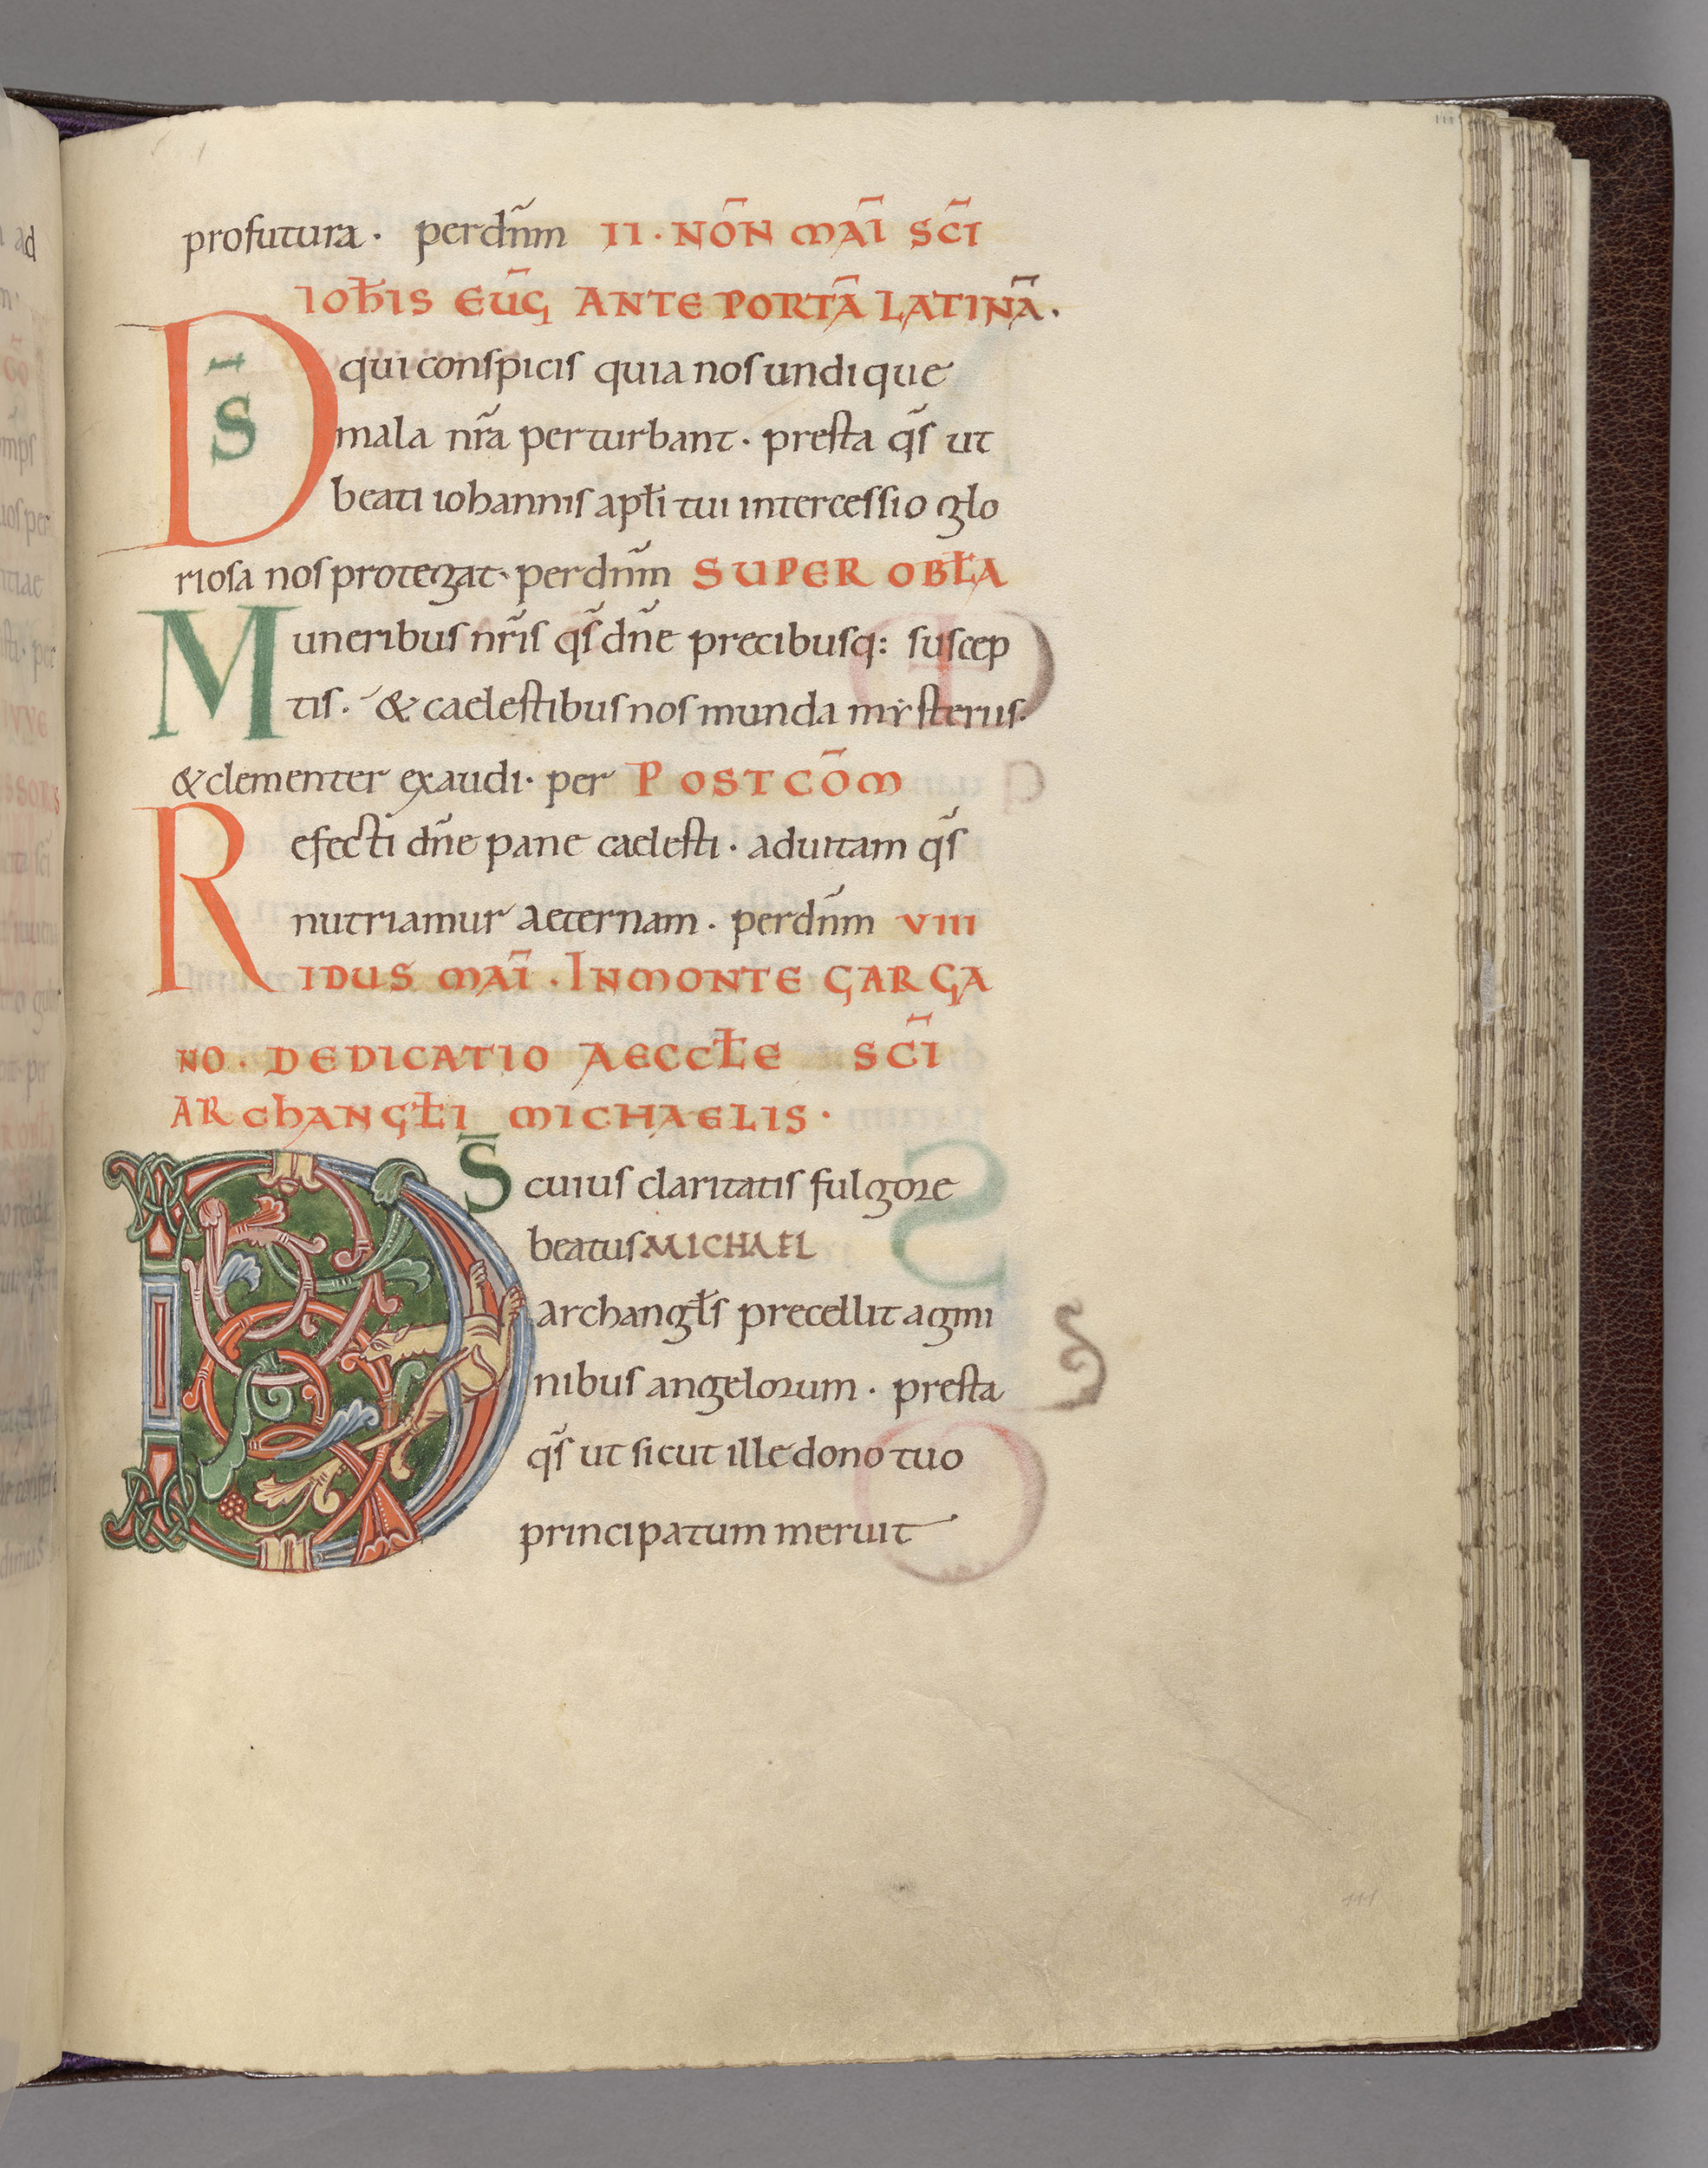 profutura · perdn̄m II · NON̄ MAĪ SC̄I
IOH̄IS EUḠ ANTE PORTĀ LATINĀ ·
DS̄ qui conspicis quia nos undique
mala nr̄a perturbant · presta qs̄ ut
beati iohannis apłi tui intercessio glo
riosa nos protegat · perdn̄m SUPER OBŁA
Muneribus nr̄is qs̄ dn̄e precibusq: suscep
tis · & caelestibus nos munda mẏsteriis ·
& clementer exaudi · per POST COM̄
Refecti dn̄e pane caelesti · ad uitam qs̄
nutriamur aeternam · perdn̄m VIII
IDUS MAĪ · IN MONTE GARGA
NO · DEDICATIO AECCŁE SC̄I
ARCHANGŁI MICHAELIS ·
DS̄ cuius claritatis fulgore
beatus MICHAEL
archangłs precellit agmi
nibus angelorum · presta
qs̄ ut sicut ille dono tuo
principatum meruit
111